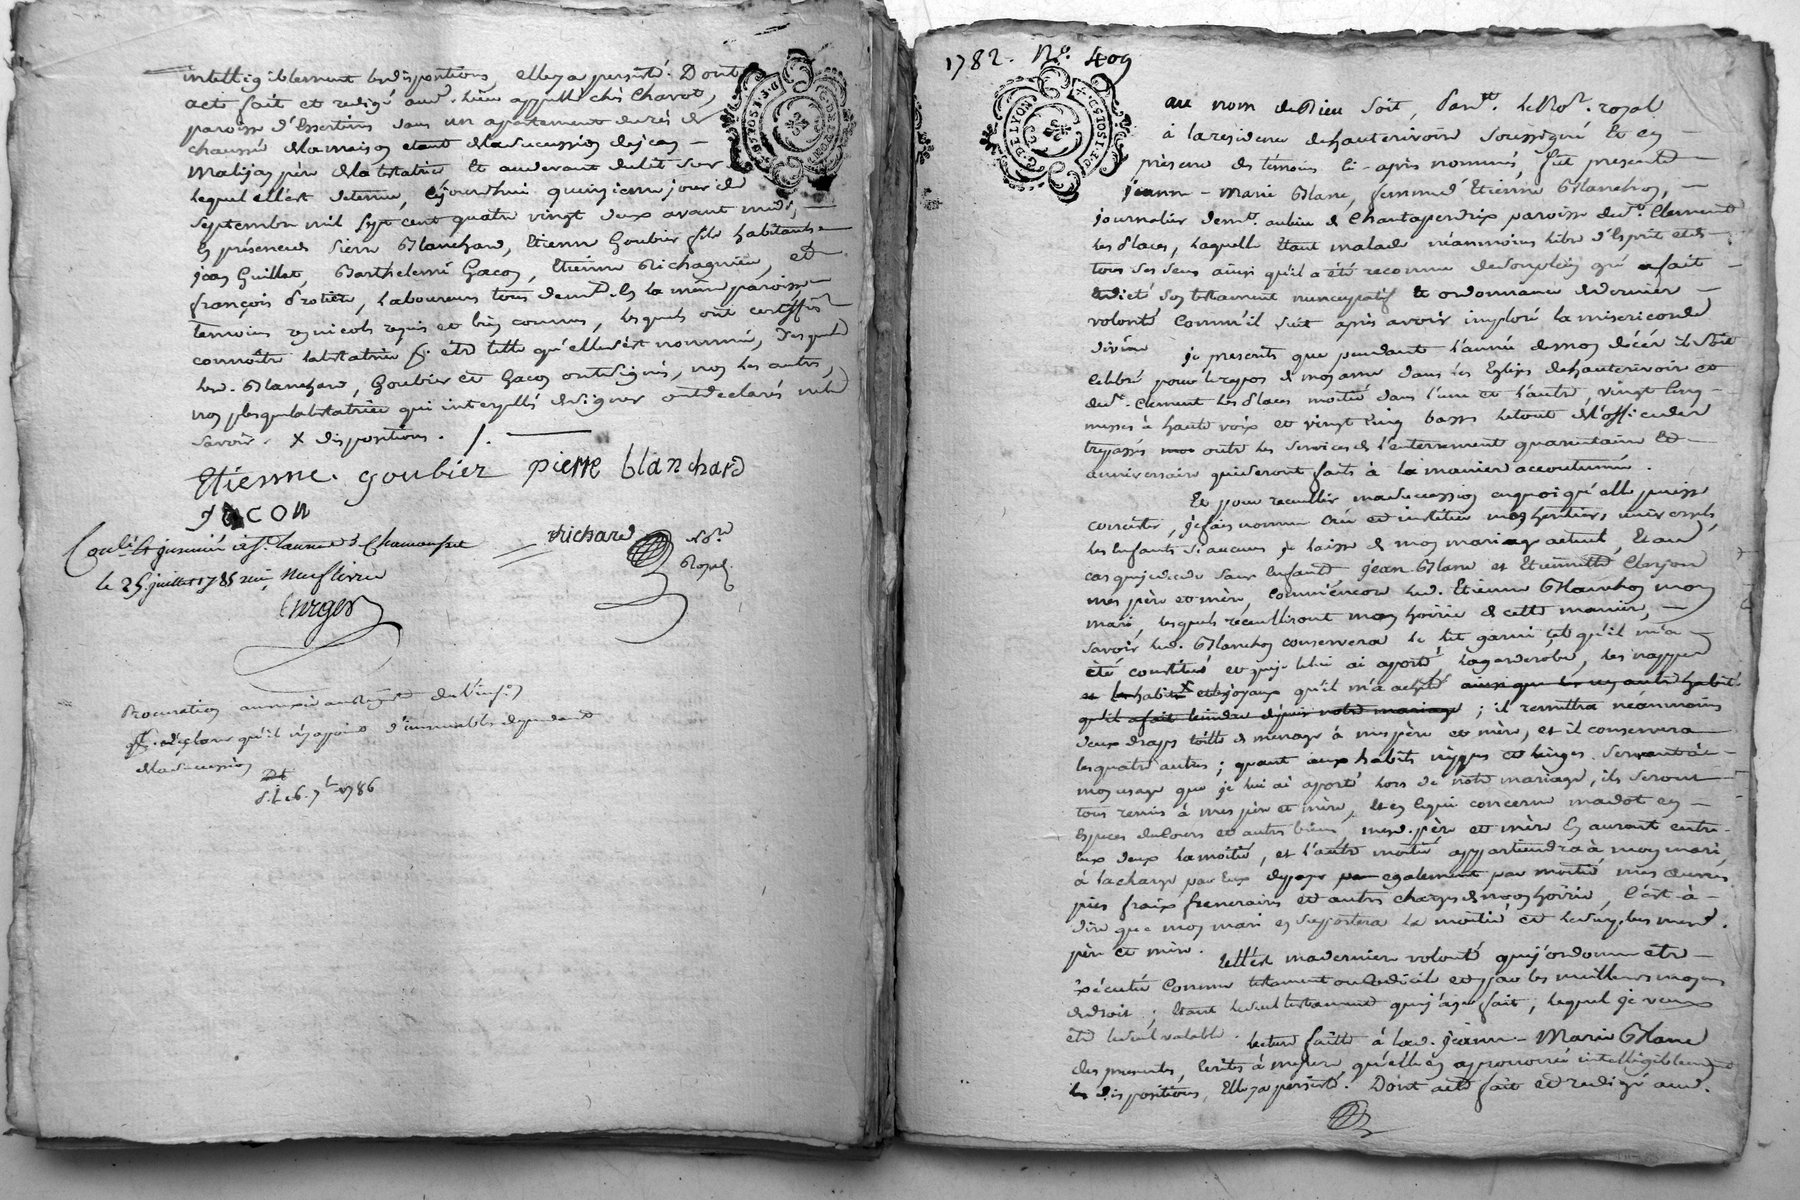 intelligiblement les dispositions, elle y a persisté. Dont
acte fait et redigé aud. lieu appellé chés Chavot,
paroisse d'Essertines dans un apartement du rés de
chaussé de la maison etant de la succession de jean
Malijay père de la testatrice et au devant du lit sur
lequel elle est detenue, cejourdhui quinzieme jour de
septembre mil sept cent quatre vingt deux avant midi,
En présence de Pierre Blanchard, Etienne Goubier fils habitants
jean Guillet, Barthelemi Gacon, Etienne Richagneu, et
françois Protière, laboureurs tous demt. En la même paroisse
temoins regnicols requis et bien connus, lesquels ont certiffié
connoitre la testatrice et être telle qu'elle s'est nommée, desquels
lesd. Blanchard, Goubier et Gacon ont signés, non les autres,
non plus que la testatrice qui interpellés de signer ont declarés ne le
savoir. X dispositions.
Etienne. goubier pierre blanchard
JACON
Richard Nore.
Royal
Conlé. et insinué à St. Laurent de Chamousset
le 25 juillet 1785 reçu neuf livres
1782. No. 409
G. DE LYON
au nom de Dieu soit, Pardt. le Nore. royal
à la residence de hauterivoire soussigné Et en
présence des témoins ci-après nommés, fut presente
jeanne-Marie Blanc, femme d'Etienne Blanchon,
journalier demt. au lieu de Chantaperdrix paroisse de St. Clement
les Places, laquelle etant malade néanmoins libre d'Esprit et de
tous ses sens ainsi qu'il a été reconnu de son plein gré a fait
et dicté son testament nuncupatif et ordonnance de derniere
volonté comm'il suit après avoir imploré la misericorde
divine je prescrits que pendant l'année de mon décès il soit
celebré pour le repos de mon ame dans les Eglises de hauterivoire et
de St. Clement les Places moitié dans l'une et l'autre, vingt cinq
messes à haute voix et vingt cinq basses le tout de l'office des
trepassés outre les services de l'enterrement quarantaine et
anniversaire qui seront faits à la maniere accoutumée.
Et pour recueillir ma succession en quoi qu'elle puisse
consister, je fais nomme crée et institue mes heritiers universels
les Enfants si aucuns je laisse de mon mariage actuel, Et au
cas que je decede sans Enfants jean Blanc et Etiennette Clerjon
mes père et mère, comm'encore led. Etienne Blanchon mon
mari, lesquels recueilliront mon hoirie de cette maniere,
savoir led. Blanchon conservera le lit garni tel qu'il m'a
été constitué et que je lui ai aporté, la garderobe, les nappes
et les habits X et bijoyaux qu'il m'a acheté ainsi que les un autre habit
qu'il a fait teindre depuis notre mariage ; il remettra néanmoins
deux draps toille de menage à mes père et mère, et il conservera
les quatre autres ; quant aux habits nippes et linges servant à
mon usage que je lui ai aporté lors de notre mariage, ils seront
tous remis à mes père et mère, Et en ce qui concerne ma dot en
Especes de cours et autres biens, mesd. père et mère En auront entre
Eux deux la moitié, et l'autre moitié appartiendra à mon mari,
à la charge par Eux de payer egalement par moitié mes œuvres
pies fraix funeraires et autres charges de mon hoirie, c'est à
dire que mon mari en supportera la moitié et le surplus mesd.
père et mère. Telle est ma derniere volonté que j'ordonne être
Exécutée comme testament ou codicile et par les meilleurs moyens
de droit ; Etant le seul testament que j'aye fait, lequel je veux
être le seul valable. Lecture faitte à lad. jeanne-Marie Blanc
des presentes, Ecrites à mesure qu'elle en a prononcé intelligiblement
les dispositions, Elle y a persisté. Dont acte fait et redigé aud.